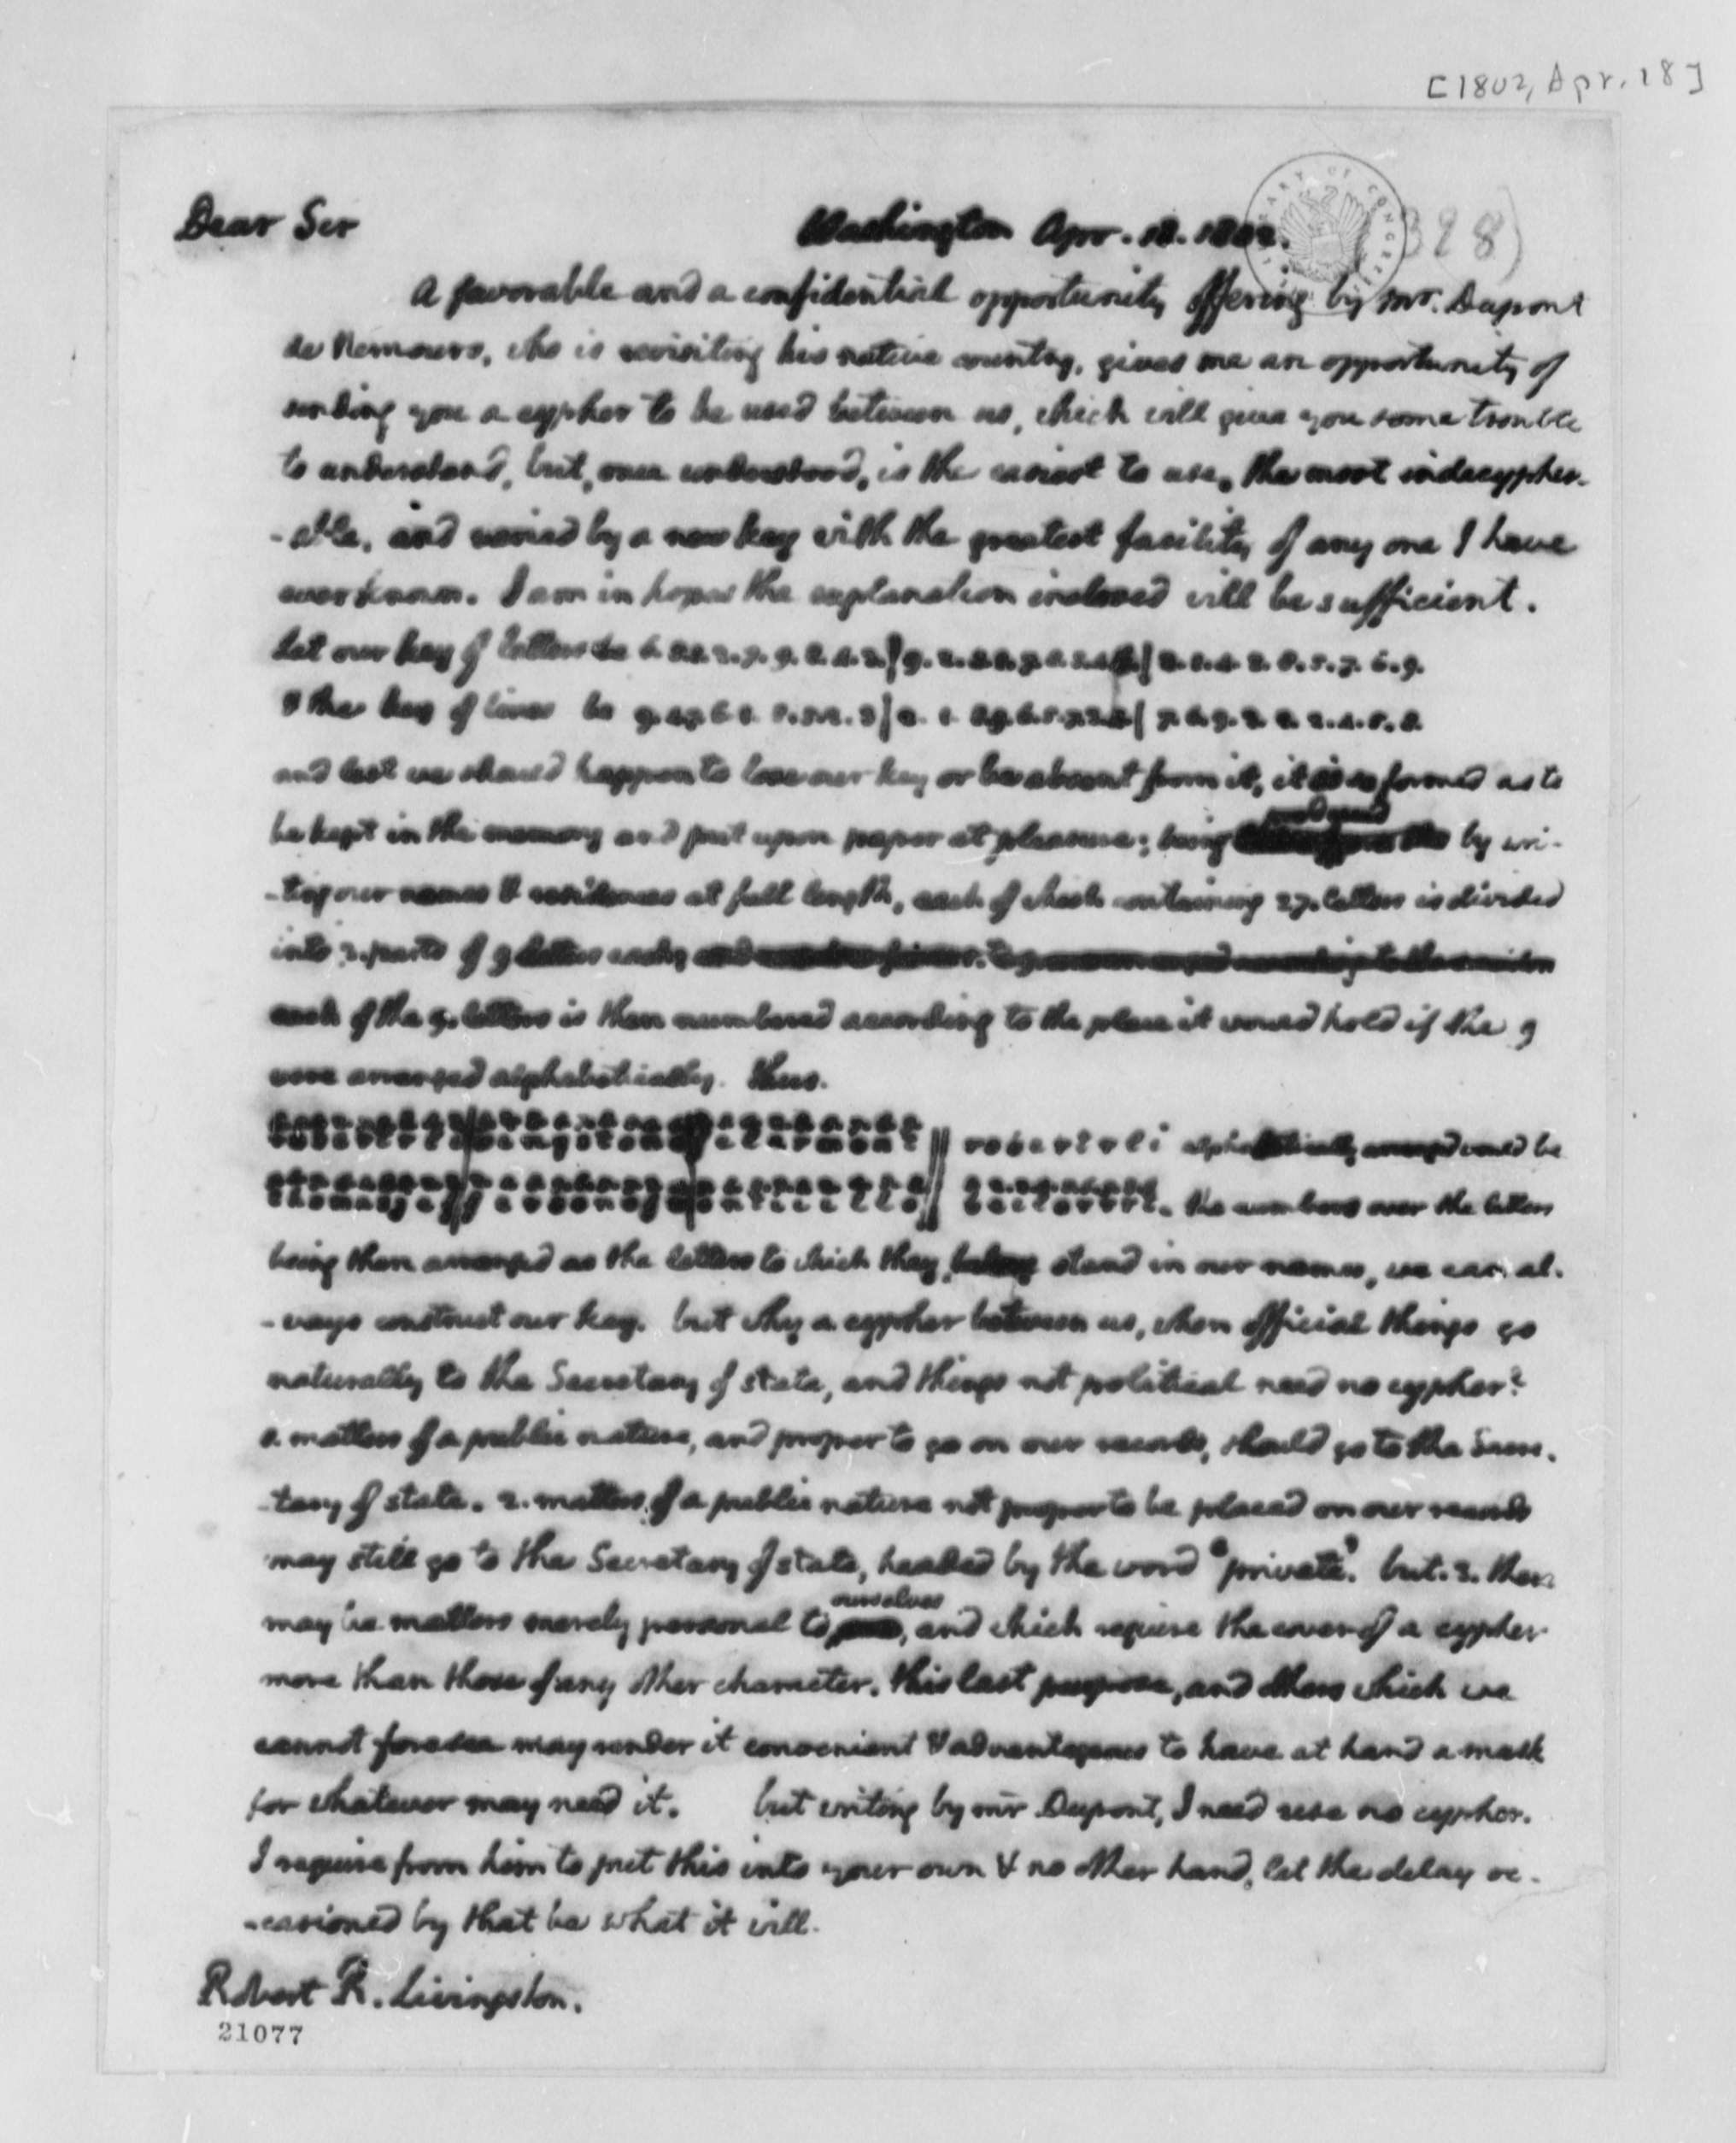 [1802, Apr. 18]
Dear Sir Washington Apr. 18. 1802.
328)
A favorable and a confidential opportunity offering by Mr. Dupont
de Nemours, who is revisiting his native country, gives me an opportunity of
sending you a cypher to be used between us, which will give you some trouble
to understand, but, once understood, is the easiest to use, the most indecypher-
-able, and varied by a new key with the greatest facility of any one I have
ever known. I am in hopes the explanation inclosed will be sufficient.
Let our key of letters be
& the key of lines be
and lest we should happen to lose our key or be absent from it, it is so formed as to
be kept in the memory and put upon paper at pleasure; being produced by wri-
-ting our names & residences at full length, each of which containing 27. letters is divided
into 3. parts of 9 letters each;
each of the 9. letters is then numbered according to the place it would hold if the 9
were arranged alphabetically. thus.
robertrli vingstono fclermont || robertrli alphabetically arranged would be
thomasjef fersonofm onticello || beilorrrt. the numbers over the letters
being then arranged as the letters to which they belong stand in our names, we can al-
-ways construct our key. but why a cypher between us, when official things go
naturally to the Secretary of state, and things not political need no cypher?
1. matters of a public nature, and proper to go on our records, should go to the Secre-
-tary of state. 2. matters of a public nature not proper to be placed on our records
may still go to the Secretary of state, headed by the word 'private.' but. 3. there
may be matters merely personal to ourselves, and which require the cover of a cypher
more than those of any other character. this last purpose, and others which we
cannot foresee may render it convenient & advantageous to have at hand a mask
for whatever may need it. but writing by mr Dupont, I need use no cypher.
I require from him to put this into your own & no other hand, let the delay oc-
-casioned by that be what it will.
Robert R. Livingston.
21077